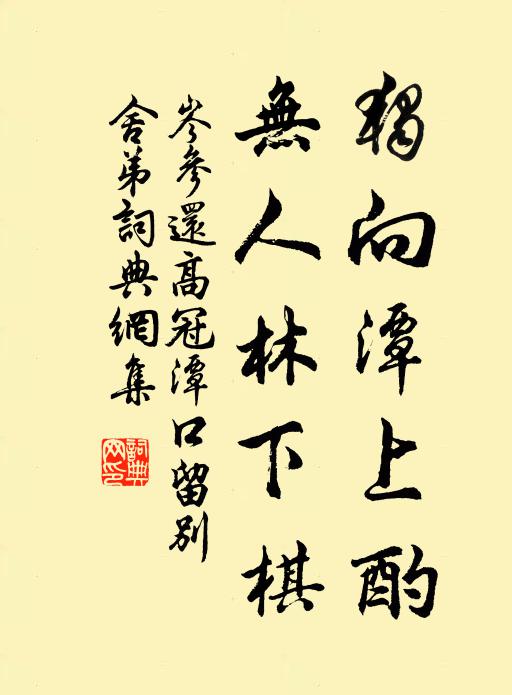 獨向潭上酌
無人林下棋
岑參還高冠潭口留別
舍弟詞典網集
詞典网印